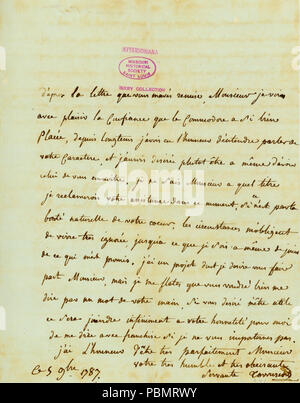 JEFFERSONIANA
MISSOURI
HISTORICAL
SOCIETY
SAINT LOUIS
BIXBY COLLECTION
d'après la lettre que vous m'avés remise, Monsieur je vois
avec plaisir la Confiance que le Commodore a si bien
Placée, depuis longtems j'avois eu l'honneur d'entendre parler de
votre Caractere et j'aurois desiré plutot etre a même d'avoir
celui de vous connoitre, je ne sais Monsieur a quel titre
je reclamerois votre assistance dans ce moment, si ce n'est par la
bonté naturelle de votre coeur, les circonstances m'obligent
de vivre très ignorée jusqu'a ce que je sois a même de jouir
de ce qui m'est promis. j'ai un projet dont je desire vous faire
part Monsieur, mais je me flate que vous voudrés bien ne
dire pas un mot de votre main. si vous desiré m'être utile
ce sera joindre infiniment a votre honnêteté pour moi
de me dire avec franchise si je ne vous importune pas.
j'ai l'honneur d'être très parfaitement Monsieur
votre très humble et très obeissante
Ce 5 9bre 1787. servante Townsend
alamy
Image ID: PBMRWY
www.alamy.com